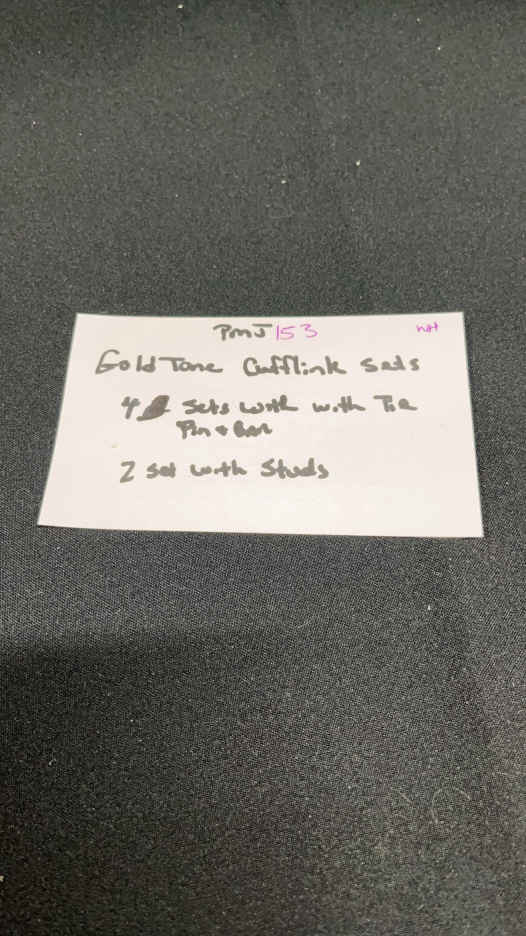 PMJ 153
Gold Tone Cufflink Sets
4 Sets with with Tie
Pin + Bar
2 set with Studs